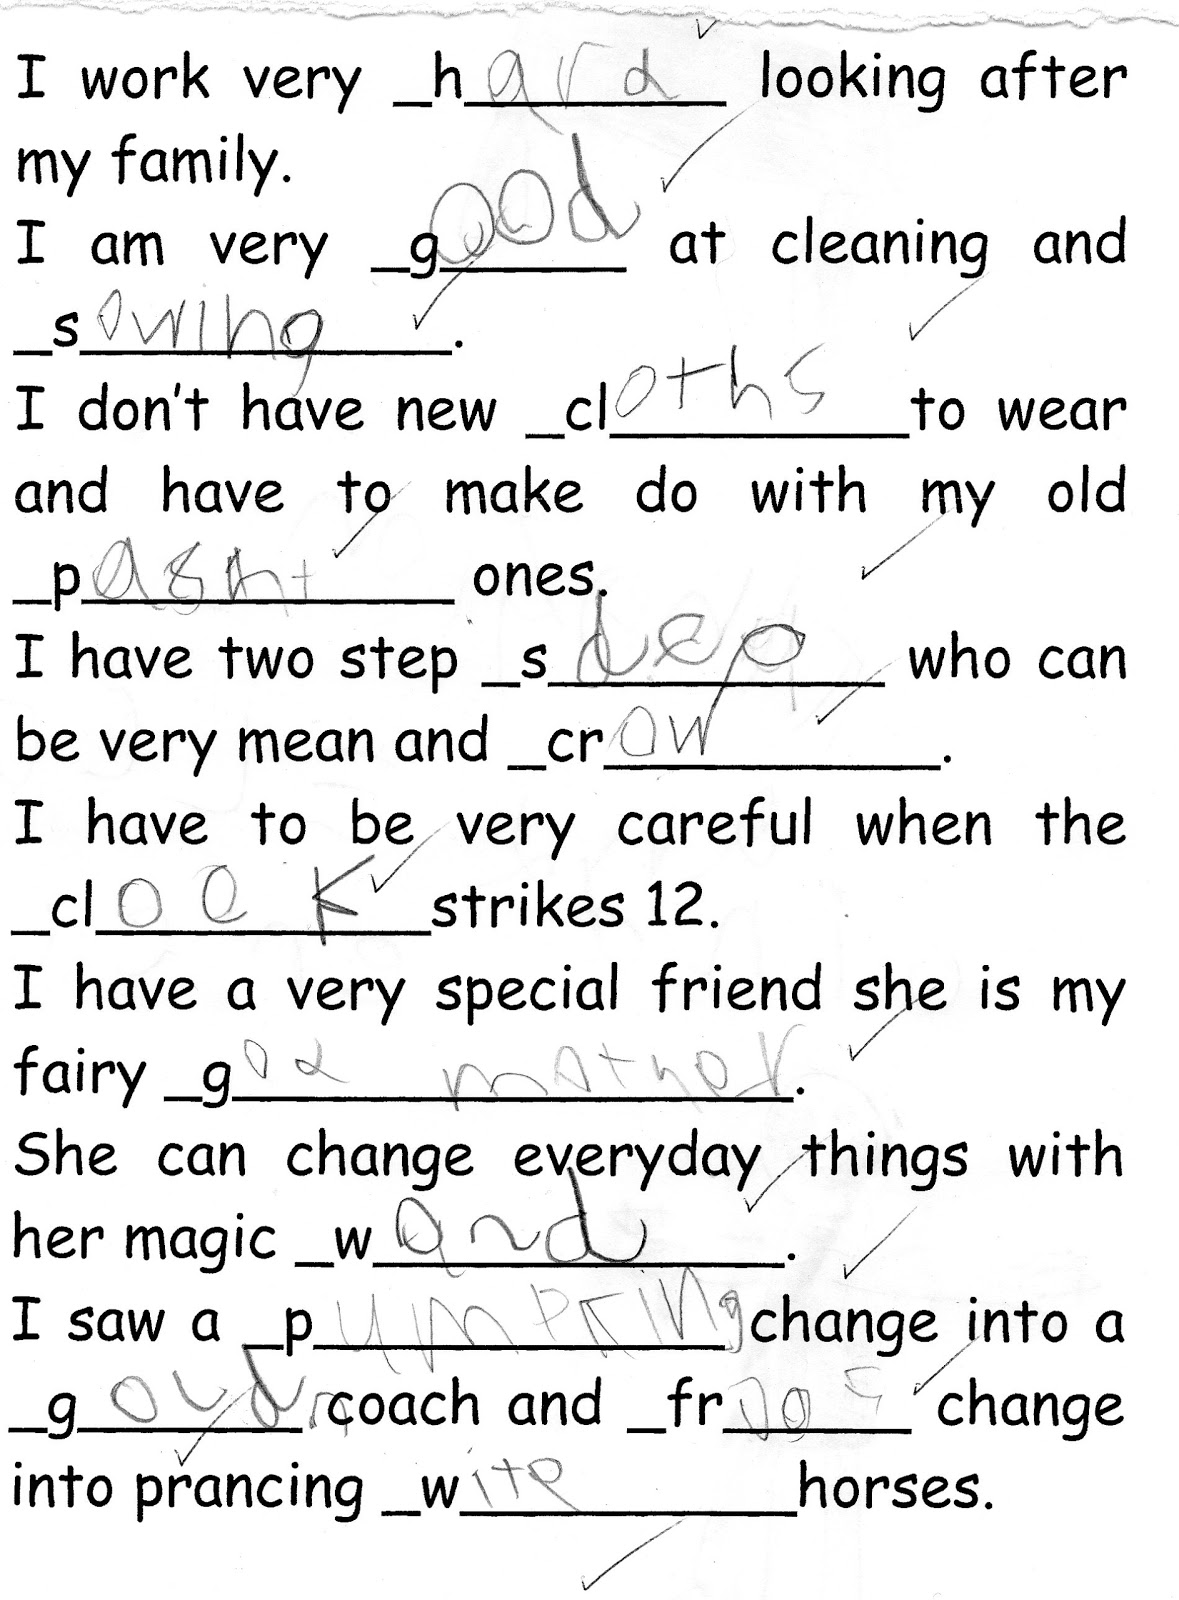 I work very _hard looking after
my family.
I am very _good at cleaning and
_sowing.
I don't have new _cloths to wear
and have to make do with my old
_p ones.
I have two step _sdep who can
be very mean and _crow.
I have to be very careful when the
_clock strikes 12.
I have a very special friend she is my
fairy _god mother.
She can change everyday things with
her magic _wand.
I saw a _pumpking change into a
_gold coach and _fr change
into prancing _wite horses.